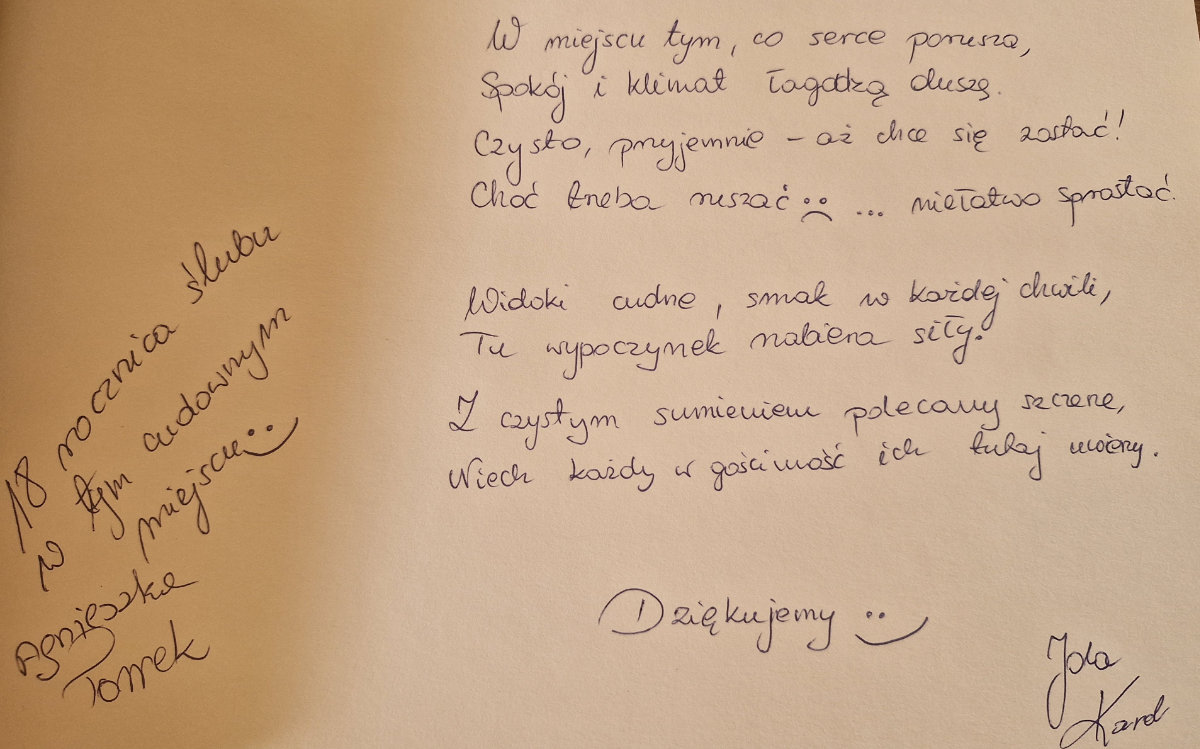 W miejscu tym, co serce porusza,
Spokój i klimat łagodzą duszę.
Czysto, przyjemnie – aż chce się zostać!
Choć trzeba ruszać :( ... niełatwo sprostać.
Widoki cudne, smak w każdej chwili,
Tu wypoczynek nabiera siły.
Z czystym sumieniem polecamy szczerze,
Niech każdy w gościnność ich tutaj uwierzy.
Dziękujemy :)
Jola
Karol
18 rocznica ślubu
w tym cudownym
miejscu :)
Agnieszka
Tomek